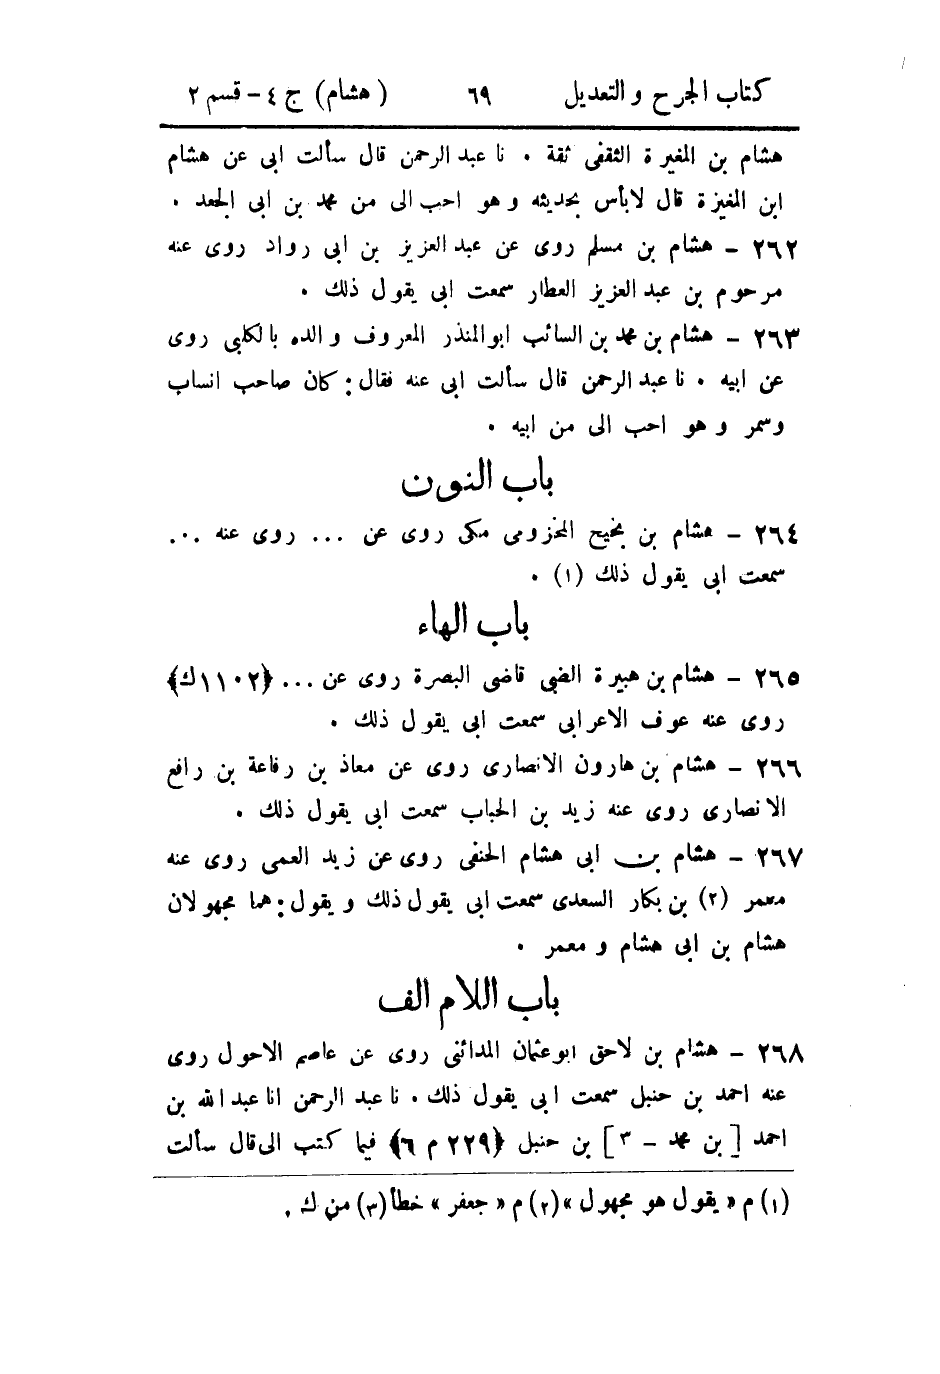 كتاب الجرح والتعديل ٦٩ (هشام) ج ٤ - قسم ٢
هشام بن المغيرة الثقفى ثقة . نا عبد الرحمن قال سألت ابى عن هشام
ابن المغيزة قال لابأس بحديثه وهو احب الى من محمد بن ابى الجعد .
٢٦٢ - هشام بن مسلم روى عن عبد العزيز بن ابى رواد روى عنه
مرحوم بن عبد العزيز العطار سمعت ابى يقول ذلك .
٢٦٣ - هشام بن محمد بن السائب ابو المنذر المعروف والده بالكلبى روى
عن ابيه . نا عبد الرحمن قال سألت ابى عنه فقال : كان صاحب انساب
وسمر وهو احب الى من ابيه .
باب النون
٢٦٤ - هشام بن نجيح المخزومى مكى روى عن ... روى عنه ...
سمعت ابى يقول ذلك (١) .
باب الهاء
٢٦٥ - هشام بن هبيرة الضبى قاضى البصرة روى عن ... ﴿١١٠٢ك﴾
روى عنه عوف الاعرابى سمعت ابى يقول ذلك .
٢٦٦ - هشام بن هارون الانصارى روى عن معاذ بن رفاعة بن رافع
الانصارى روى عنه زيد بن الحباب سمعت ابى يقول ذلك .
٢٦٧ - هشام بن ابى هشام الحنفى روى عن زيد العمى روى عنه
معمر (٢) بن بكار السعدى سمعت ابى يقول ذلك ويقول : هما مجهولان
هشام بن ابى هشام ومعمر .
باب اللام الف
٢٦٨ - هشام بن لاحق ابو عثمان المدائنى روى عن عاصم الاحول روى
عنه احمد بن حنبل سمعت ابى يقول ذلك . نا عبد الرحمن انا عبد الله بن
احمد [بن محمد - ٣] بن حنبل ﴿٢٢٩ م ٦﴾ فيما كتب الى قال سألت
(١) م « يقول هو مجهول » (٢) م « جعفر » خطأ (٣) من ك .